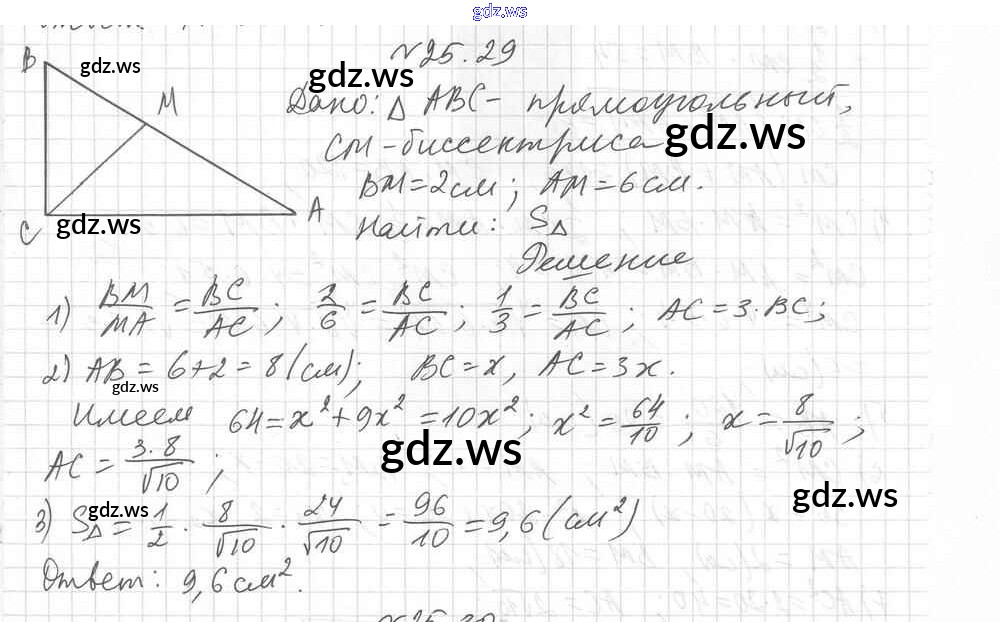 gdz.ws
№25.29
B
gdz.ws
M
gdz.ws
Дано: △ ABC - прямоугольный,
gdz.ws
CM - биссектриса
BM = 2 см; AM = 6 см.
A
C
gdz.ws
Найти: S△
Решение
1) BM/MA = BC/AC; 2/6 = BC/AC; 1/3 = BC/AC; AC = 3·BC;
2) AB = 6+2 = 8 (см); BC = x, AC = 3x.
gdz.ws
Имеем 64 = x² + 9x² = 10x²; x² = 64/10; x = 8/√10;
gdz.ws
AC = 3·8/√10;
gdz.ws
gdz.ws
3) S△ = 1/2 · 8/√10 · 24/√10 = 96/10 = 9,6 (см²)
Ответ: 9,6 см².